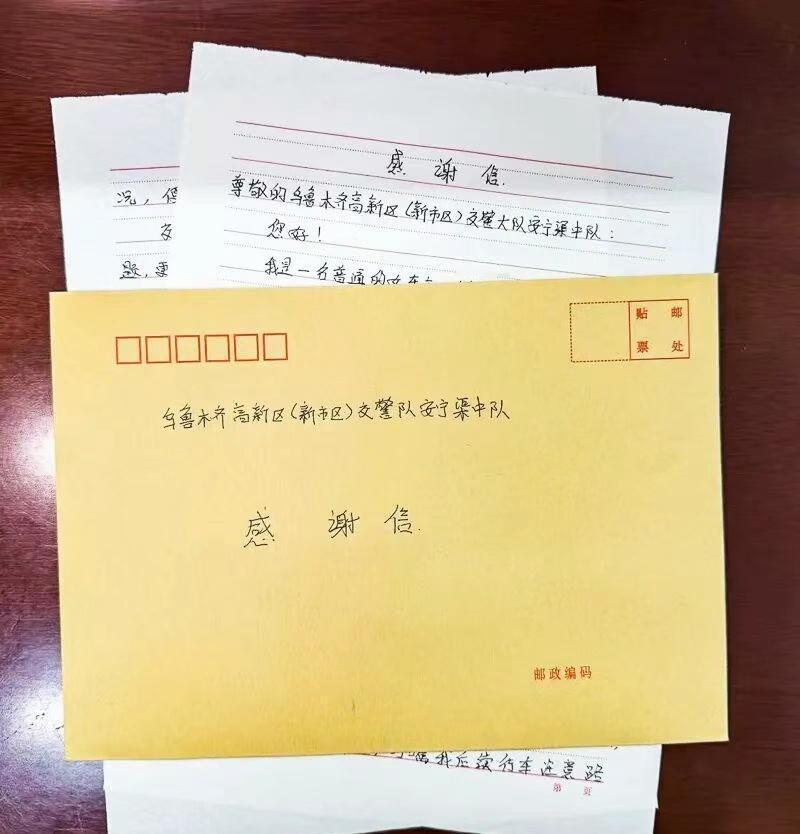 感谢信.
尊敬的乌鲁木齐高新区(新市区)交警大队安宁渠中队:
您好!
我是一名普通的女车
况,
题,更
贴 邮
票 处
乌鲁木齐高新区(新市区)交警队安宁渠中队
感 谢 信.
邮政编码
我后续行车注意路
第 页